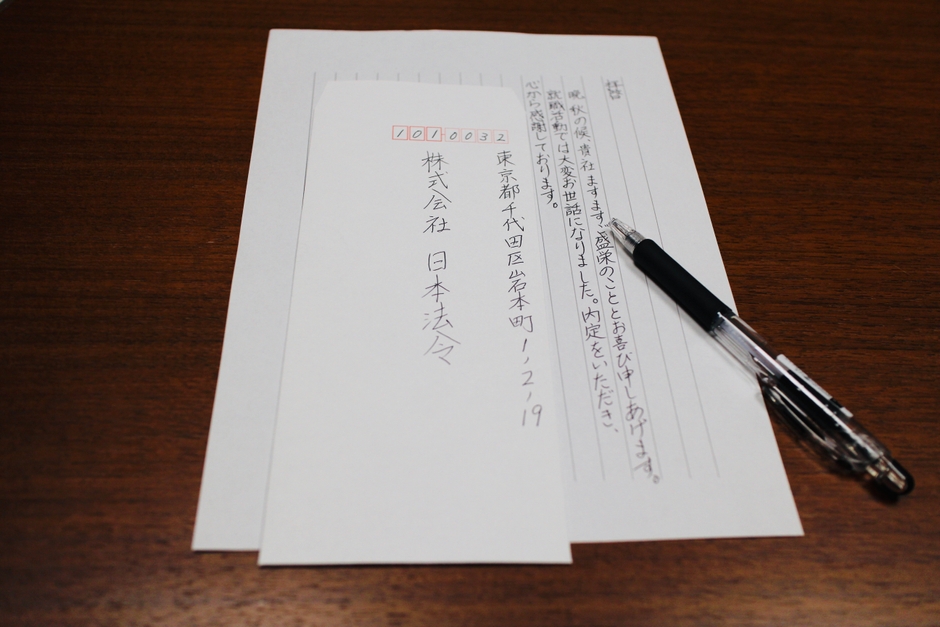 1010032
東京都千代田区岩本町1,2,19
株式会社 日本法令
拝啓
晩秋の候 貴社ますますご盛栄のこととお喜び申しあげます。
就職活動では大変お世話になりました。内定をいただき、
心から感謝しております。